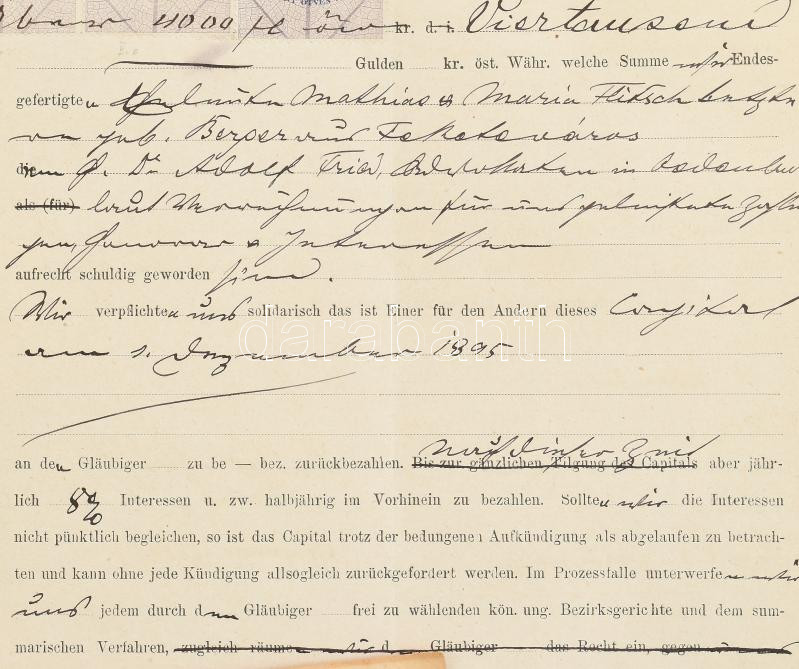 über 4000 fl öW kr. d. i. Viertausend
Gulden kr. öst. Währ. welche Summe wir Endes-
gefertigten Eheleute Mathias & Maria Flitsch letzte-
re geb. Berger aus Feketeváros
dem H. Dr. Adolf Fried, Advokaten in Oedenburg
als (für) laut Verrechnungen für uns geleistete
&
aufrecht schuldig geworden sind.
Wir verpflichten uns solidarisch das ist Einer für den Andern dieses Capital
am 1. Dezember 1895
darabanth
nach dieser Zeit
an den Gläubiger zu be — bez. zurückbezahlen. Bis zur gänzlichen Tilgung des Capitals aber jähr-
lich 8% Interessen u. zw. halbjährig im Vorhinein zu bezahlen. Sollten wir die Interessen
nicht pünktlich begleichen, so ist das Capital trotz der bedungenen Aufkündigung als abgelaufen zu betrach-
ten und kann ohne jede Kündigung allsogleich zurückgefordert werden. Im Prozessfalle unterwerfen wir
uns jedem durch den Gläubiger frei zu wählenden kön. ung. Bezirksgerichte und dem sum-
marischen Verfahren, zugleich räumen wir d Gläubiger das Recht ein, gegen